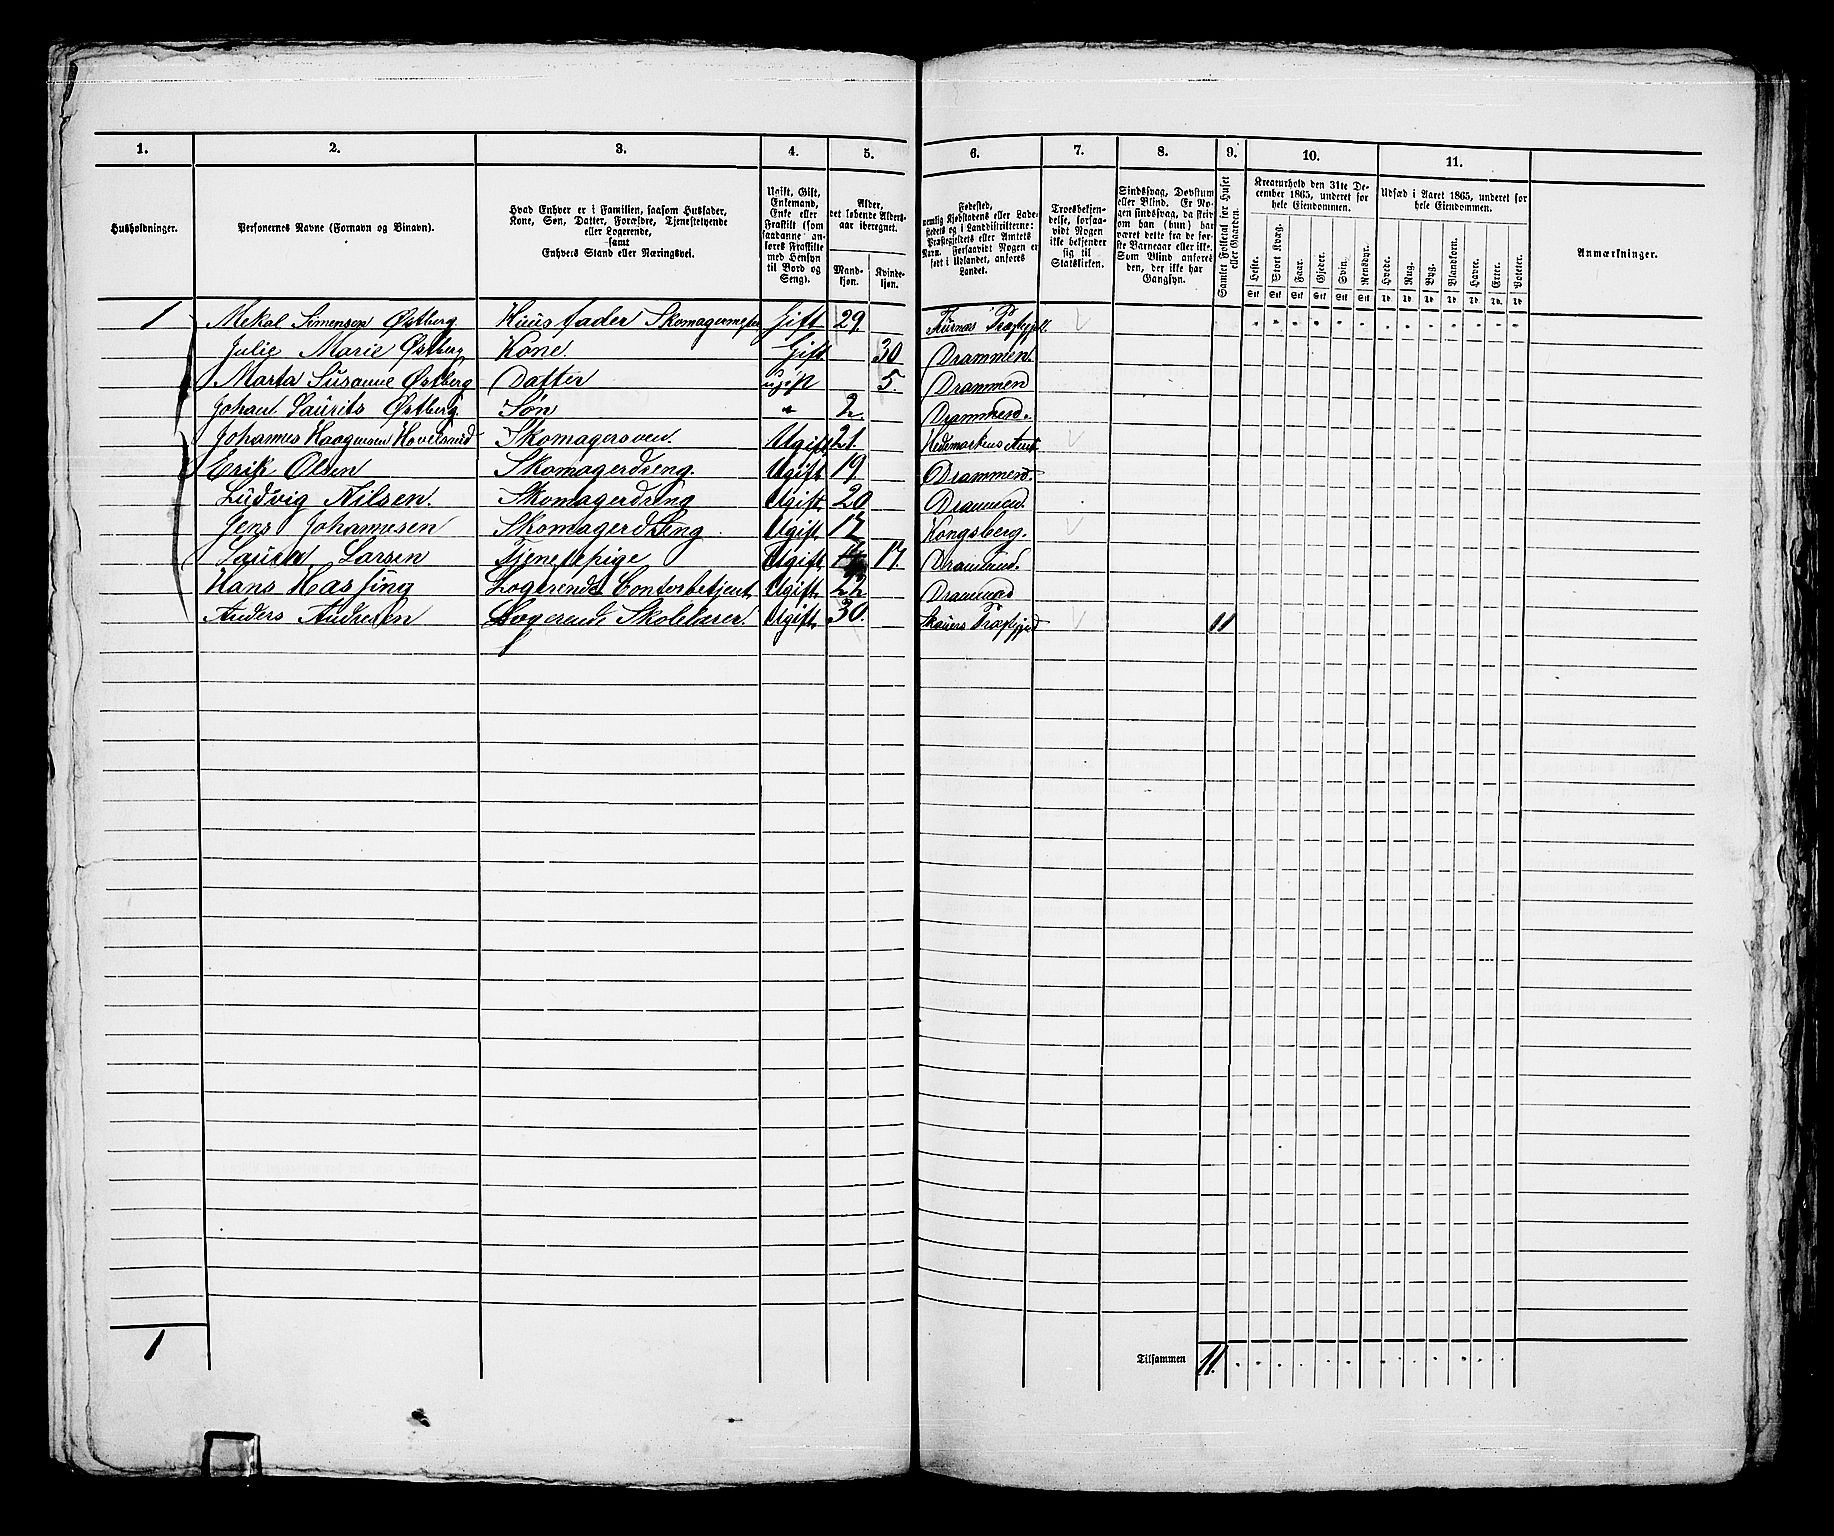 1. 2. 3. 4. 5. 6. 7. 8. 9. 10. 11.
Husholdninger.
Personernes Navne (Fornavn og Binavn).
Hvad Enhver er i Familien, saasom Husfader,
Kone, Søn, Datter, Forældre, Tjenestetyende
eller Logerende,
samt
Enhvers Stand eller Næringsvei.
Ugift, Gift,
Enkemand,
Enke eller
Fraskilt (som
saadanne an-
føres Fraskilte
med Hensyn
til Bord og
Seng).
Alder,
det løbende Alders-
aar iberegnet.
Mand-
kjøn.
Kvinde-
kjøn.
Fødested,
nemlig Kjøbstadens eller Lade-
stedets og i Landdistrikterne:
Præstegjeldets eller Amtets
Navn. Forsaavidt Nogen er
født i Udlandet, anføres
Landet.
Troesbekjen-
delse, forsaa-
vidt Nogen
ikke bekjender
sig til
Statskirken.
Sindssvag, Døvstum
eller Blind. Er No-
gen sindssvag, da skriv
om han (hun) har
været dette fra de før-
ste Barneaar eller ikke.
Som Blind anføres
den, der ikke har
Gangsyn.
Samlet Folketal for Huset
eller Gaarden.
Kreaturhold den 31te De-
cember 1865, underet for
hele Eiendommen.
Heste. Stort Kvæg. Faar. Gjeder. Svin. Rensdyr.
Stk Stk Stk Stk Stk Stk
Udsæd i Aaret 1865, underet for
hele Eiendommen.
Hvede. Rug. Byg. Blandkorn. Havre. Erter. Poteter.
Anmærkninger.
1 Mekal Simensen Østberg Huusfader Skomagermester Gift 29. Præstgjell.
Julie Marie Østberg Kone. Gift 30 Drammen.
Marta Susanne Østberg Datter ugift 5. Drammen
Johan Laurits Østberg Søn " 2. Drammen.
Johannes Haagensen Skomagersven. Ugift 21. Hedemarkens Amt
Erik Olsen Skomagerdreng. Ugift 19 Drammen.
Ludvig Nilsen. Skomagerdreng Ugift 20 Drammen.
Jens Johannesen Skomagerdreng Ugift 17 Kongsberg.
Larsen Tjenestepige Ugift 17. Drammen.
Hans Hassing Logerende Contorbetjent Ugift 22 Drammen
Anders Andresen Logerende Skolelærer. Ugift 30. Præstgjeld 11
1 Tilsammen 11.